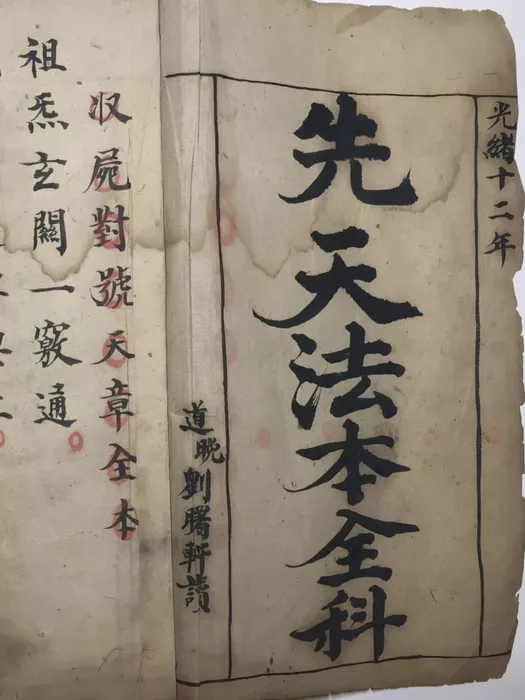 光緒十二年
先天法本全科
道晚劉曙軒讀
収屍對號天章全本
祖炁玄關一竅通